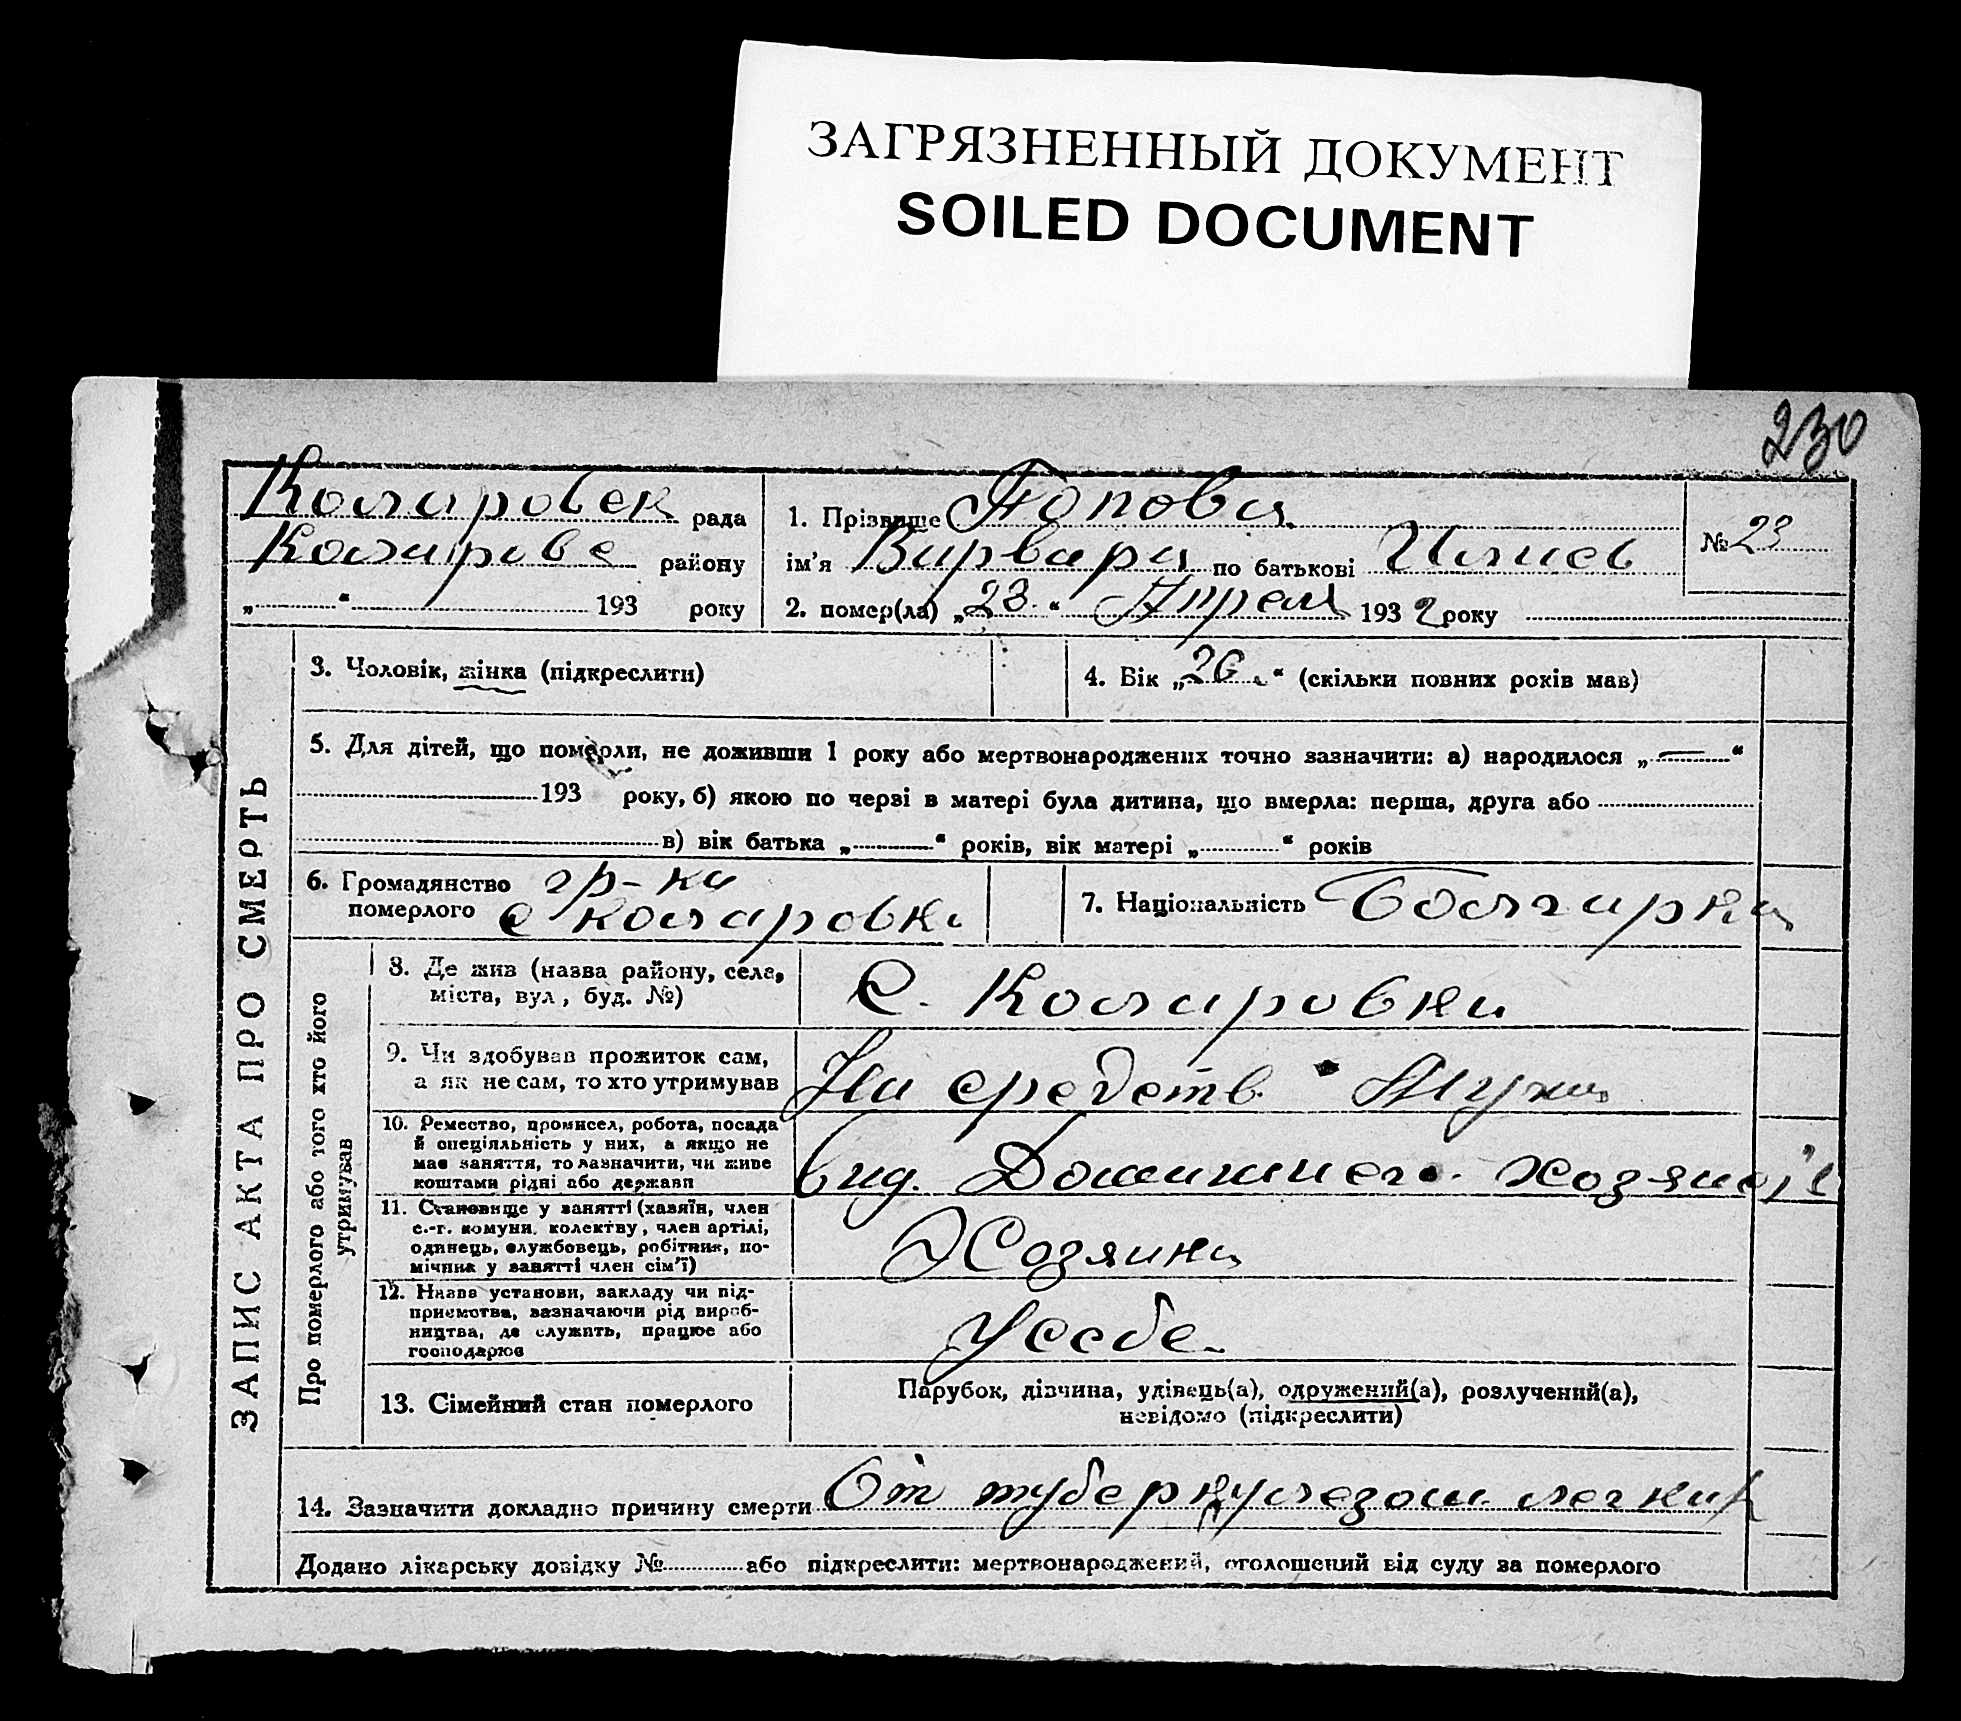 ЗАГРЯЗНЕННЫЙ ДОКУМЕНТ
SOILED DOCUMENT
230
Коларовск рада
Коларовс району
„ “ 193 року
1. Прізвище Попова
ім'я Варвара по батькові Илиев
2. помер(ла) „23“ Апреля 1932 року
№ 23
ЗАПИС АКТА ПРО СМЕРТЬ
3. Чоловік, жінка (підкреслити)
4. Вік „26“ (скільки повних років мав)
5. Для дітей, що померли, не доживши 1 року або мертвонароджених точно зазначити: а) народилося „—“
193 року, б) якою по черзі в матері була дитина, що вмерла: перша, друга або
в) вік батька „ “ років, вік матері „ “ років
6. Громадянство гр-ка
померлого с Коларовки
7. Національність Болгарка
Про померлого або того хто його
утримував
8. Де жив (назва району, села,
міста, вул, буд. №)
С. Коларовки
9. Чи здобував прожиток сам,
а як не сам, то хто утримував
На средств Мужа
10. Ремество, промисел, робота, посада
й спеціяльність у них, а якщо не
має заняття, то зазначити, чи живе
коштами рідні або держави
Домашнего
11. Становище у занятті (хазяїн, член
с.-г. комуни, колектву, член артілі,
одинець, службовець, робітник, по-
мічник у занятті член сім'ї)
Хозяика
12. Назва установи, закладу чи під-
приємства, зазначаючи рід вироб-
ництва, де служить, працює або
господарює
У себе
13. Сімейний стан померлого
Парубок, дівчина, удівець(а), одружений(а), розлучений(а),
невідомо (підкреслити)
14. Зазначити докладно причину смерти От туберкулезом легких
Додано лікарську довідку № або підкреслити: мертвонароджений, оголошений від суду за померлого